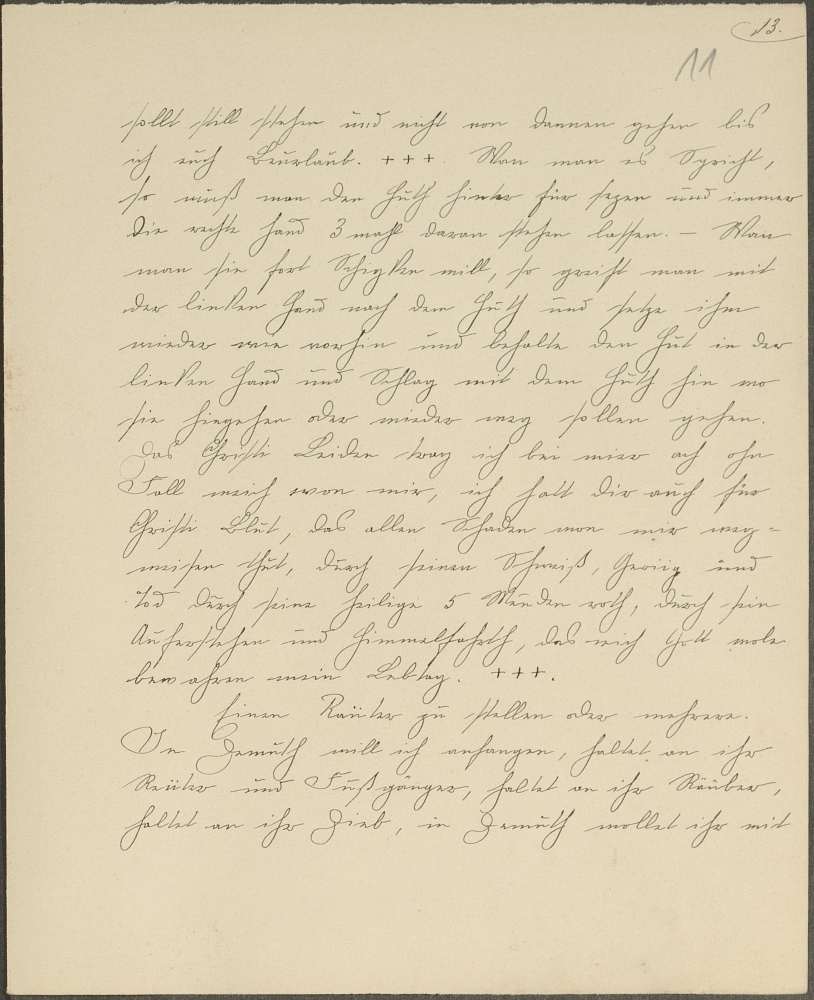 13.
11
sollt still stehen und nicht von dannen gehen bis
ich euch Beurlaub. +++. Wan man es Spricht,
so muß man den Huth hinter für sezen und immer
die rechte Hand 3 mahl daran stehen lassen. — Wan
man sie fort Schigken will, so greift man mit
der linken Hand nach dem Huth und setze ihn
wieder wie vorhin und behalte den Hut in der
linken Hand und Schlag mit dem Huth hin wo
sie hingehen oder wieder weg sollen gehen.
Das Christi Leiden trag ich bei mier ach ohn
Fall weich von mir, ich halt dir auch für
Christi Blut, das allen Schaden von mir weg-
weisen thut, durch seinen Schweiß, und
Tod durch seine heilige 5 Wunden roth, durch sein
Auferstehen und Himmelfahrth, das mich Gott wole
bewahren mein Lebtag. +++.
Einen Räuter zu stellen oder mehrere.
In Demuth will ich anfangen, haltet an ihr
Reüter und Fußgänger, haltet an ihr Räuber,
haltet an ihr Dieb, in Demuth wollet ihr mit